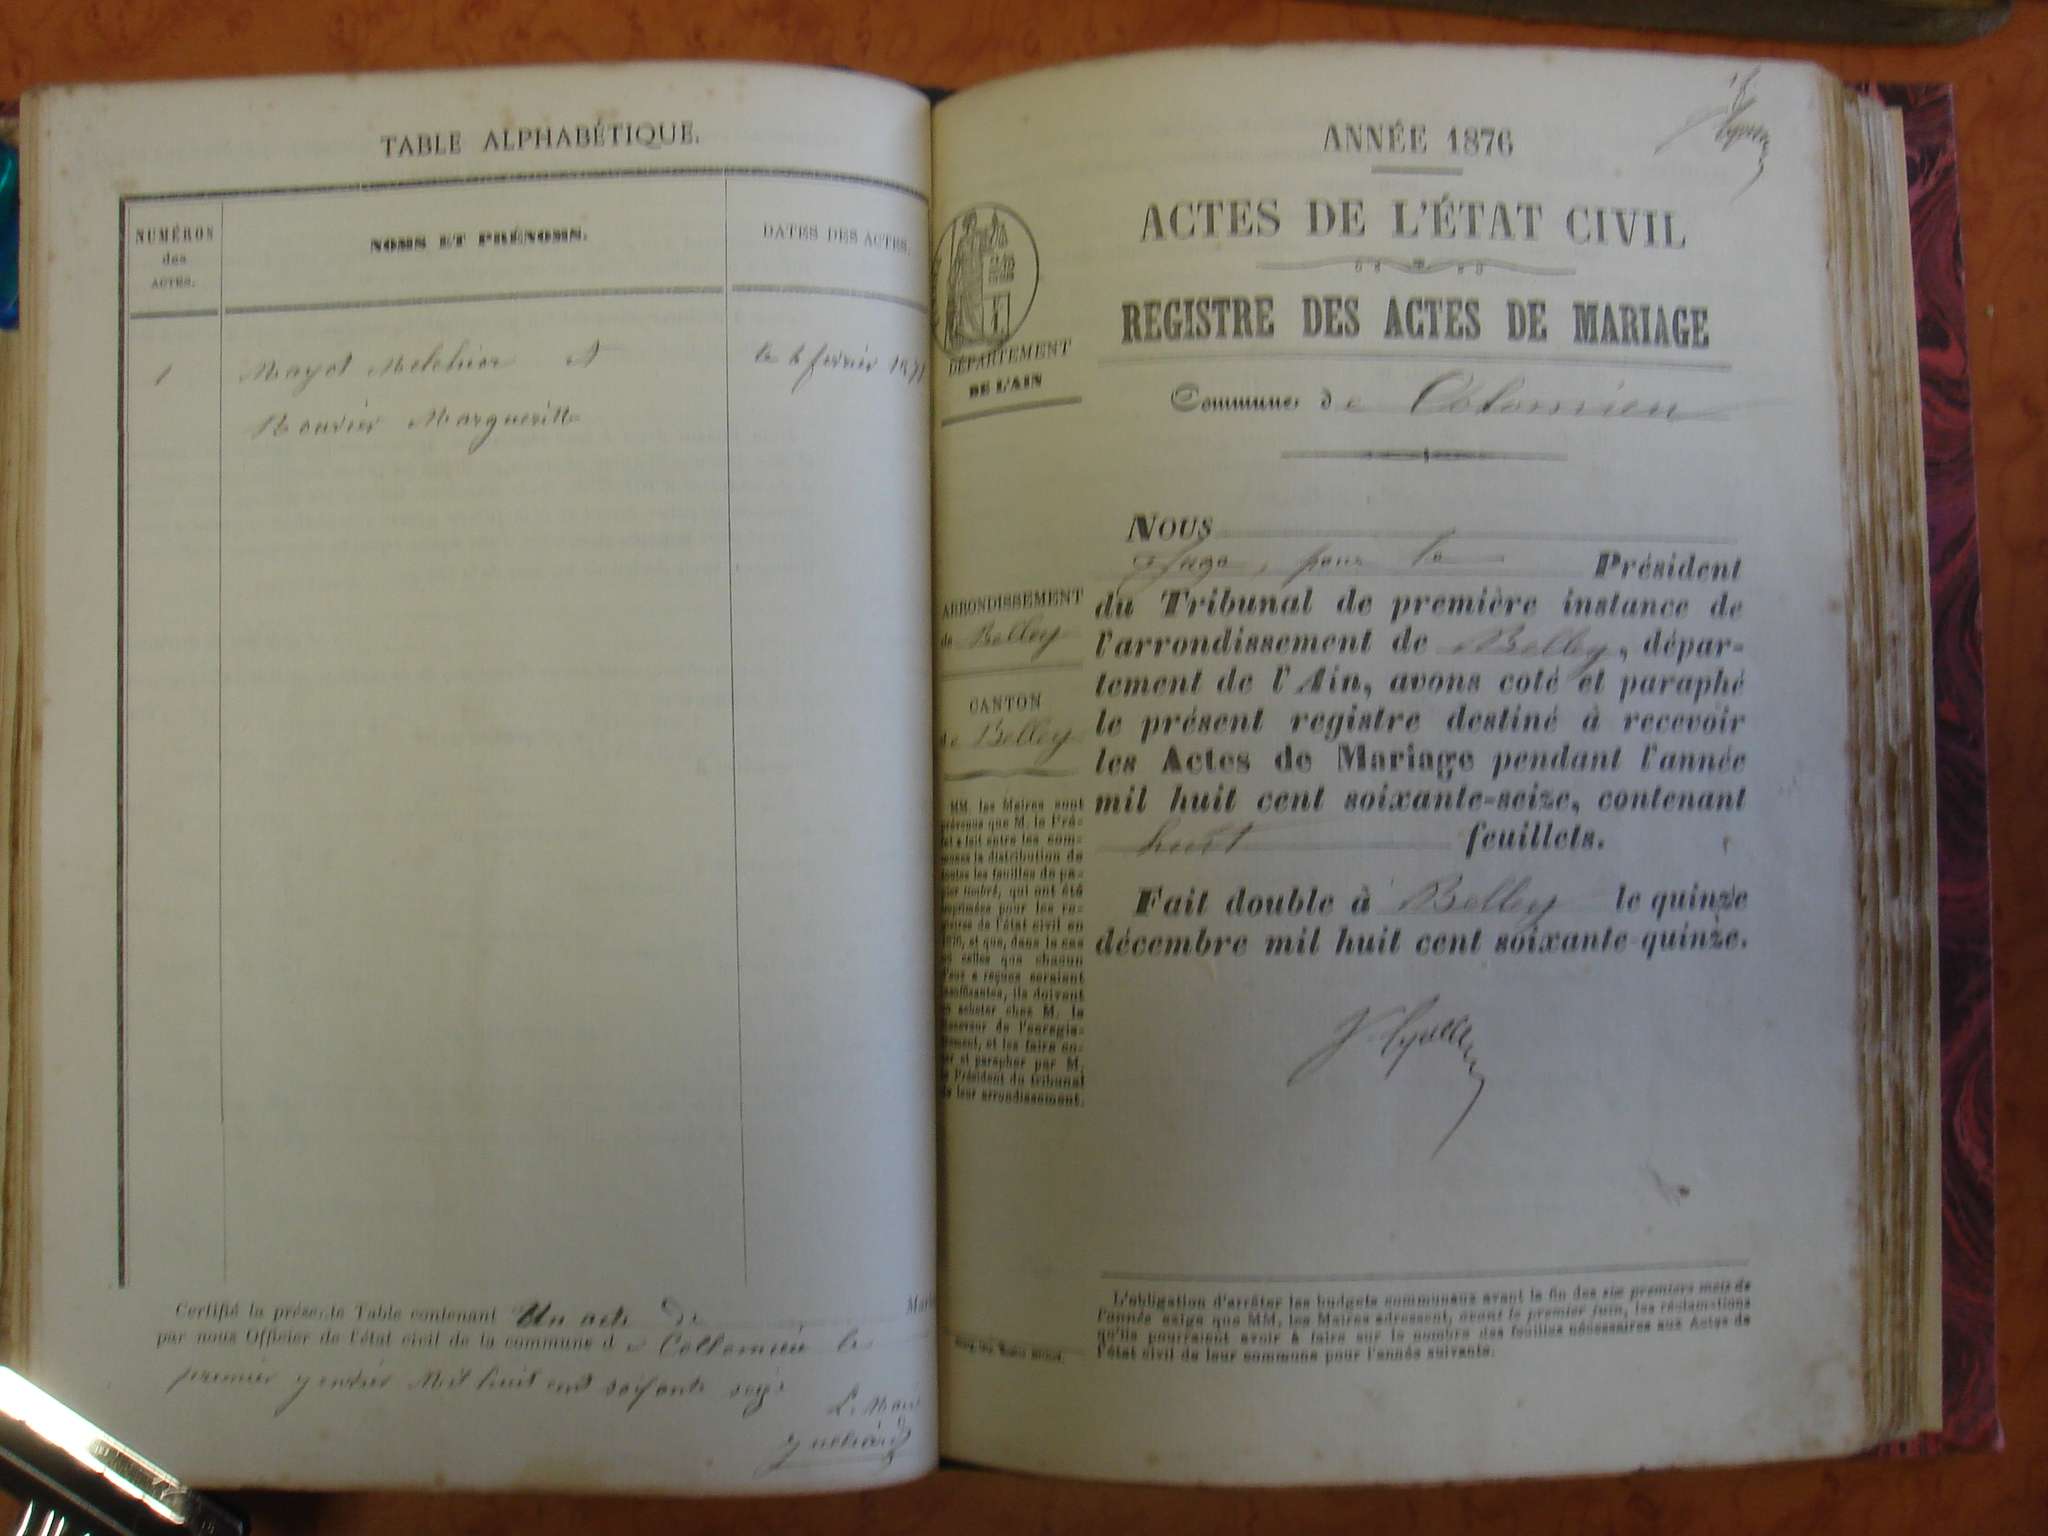 TABLE ALPHABÉTIQUE.
NUMÉROS
des
ACTES.
NOMS ET PRÉNOMS.
DATES DES ACTES.
1
Mayot Melchior et
le 6 février 1875
Rouvier Marguerite
Certifié la présente Table contenant Un acte de
par nous Officier de l'état civil de la commune de Collomieu le
premier janvier Mil huit cent soixante seize
Le Maire
ANNÉE 1876
ACTES DE L'ÉTAT CIVIL
REGISTRE DES ACTES DE MARIAGE
DÉPARTEMENT
DE L'AIN
Commune de Colomieu
NOUS
Juge, pour le Président
du Tribunal de première instance de
l'arrondissement de Belley, dépar-
tement de l'Ain, avons coté et paraphé
le présent registre destiné à recevoir
les Actes de Mariage pendant l'année
mil huit cent soixante-seize, contenant
huit feuillets.
Fait double à Belley le quinze
décembre mil huit cent soixante-quinze.
ARRONDISSEMENT
de Belley
CANTON
de Belley
MM. les Maires sont
prévenus que M. le Pré-
fet a fait entre les com-
munes la distribution de
toutes les feuilles de pa-
pier timbré, qui ont été
imprimées pour les re-
gistres de l'état civil en
1876, et que, dans le cas
où celles que chacun
d'eux a reçues seraient
insuffisantes, ils doivent
en acheter chez M. le
Receveur de l'enregis-
trement, et les faire co-
ter et parapher par M.
le Président du tribunal
de leur arrondissement.
L'obligation d'arrêter les budgets communaux avant la fin des six premiers mois de
l'année exige que MM. les Maires adressent, avant le premier juin, les réclamations
qu'ils pourraient avoir à faire sur le nombre des feuilles nécessaires aux Actes de
l'état civil de leur commune pour l'année suivante.